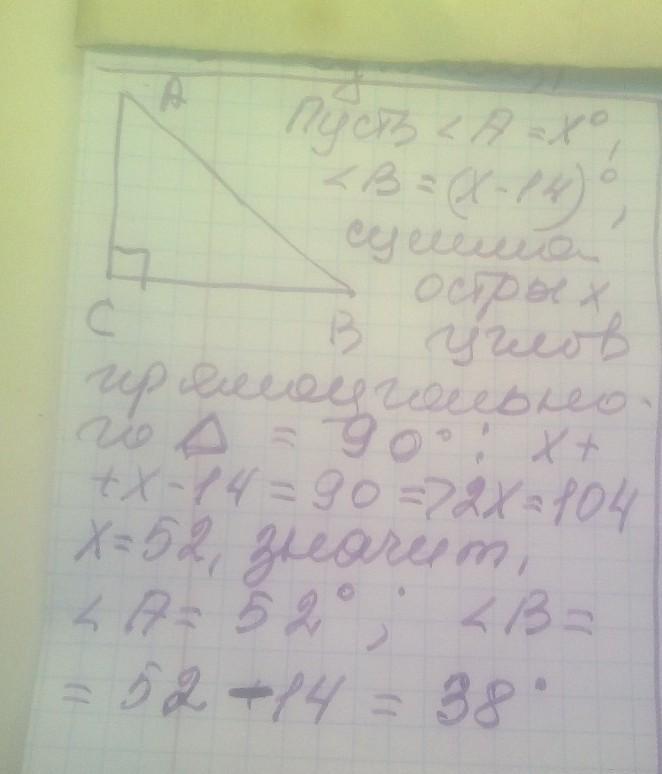 A
Пусть <A = x°,
<B = (x-14)°,
сумма
острых
C
B
углов
прямоугольно-
го Δ = 90°: x+
+x-14 = 90 => 2x = 104
x = 52, значит,
<A = 52°; <B =
= 52 - 14 = 38°